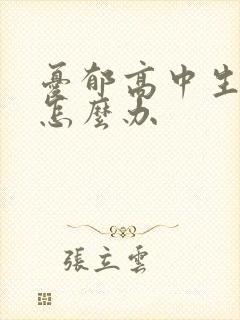 憂郁高中生
怎麼办
張立雲